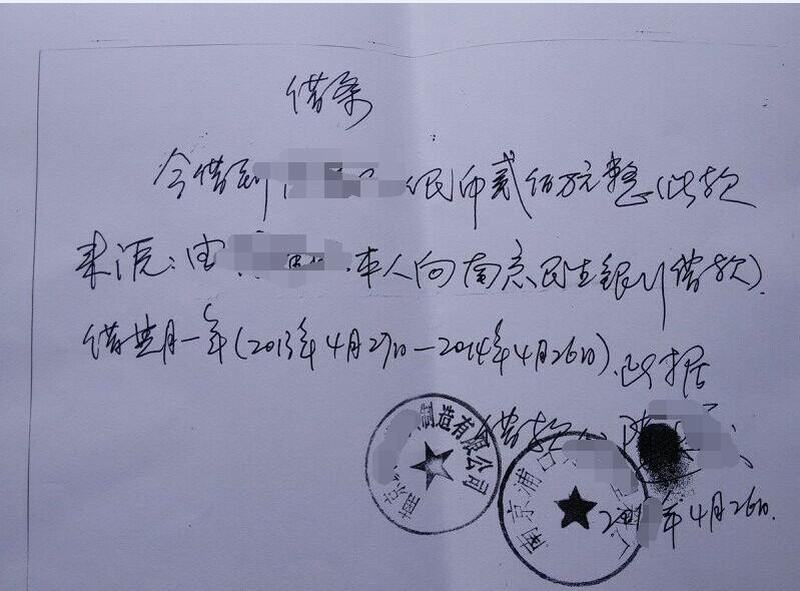 借条
今借到 民币贰佰万元整(此款
来源:由 本人向南京民生银行借款)
借期一年(2013年4月27日—2014年4月26日).此据
借款人 陈
年4月26日.
南京 制造有限公司
南京浦口